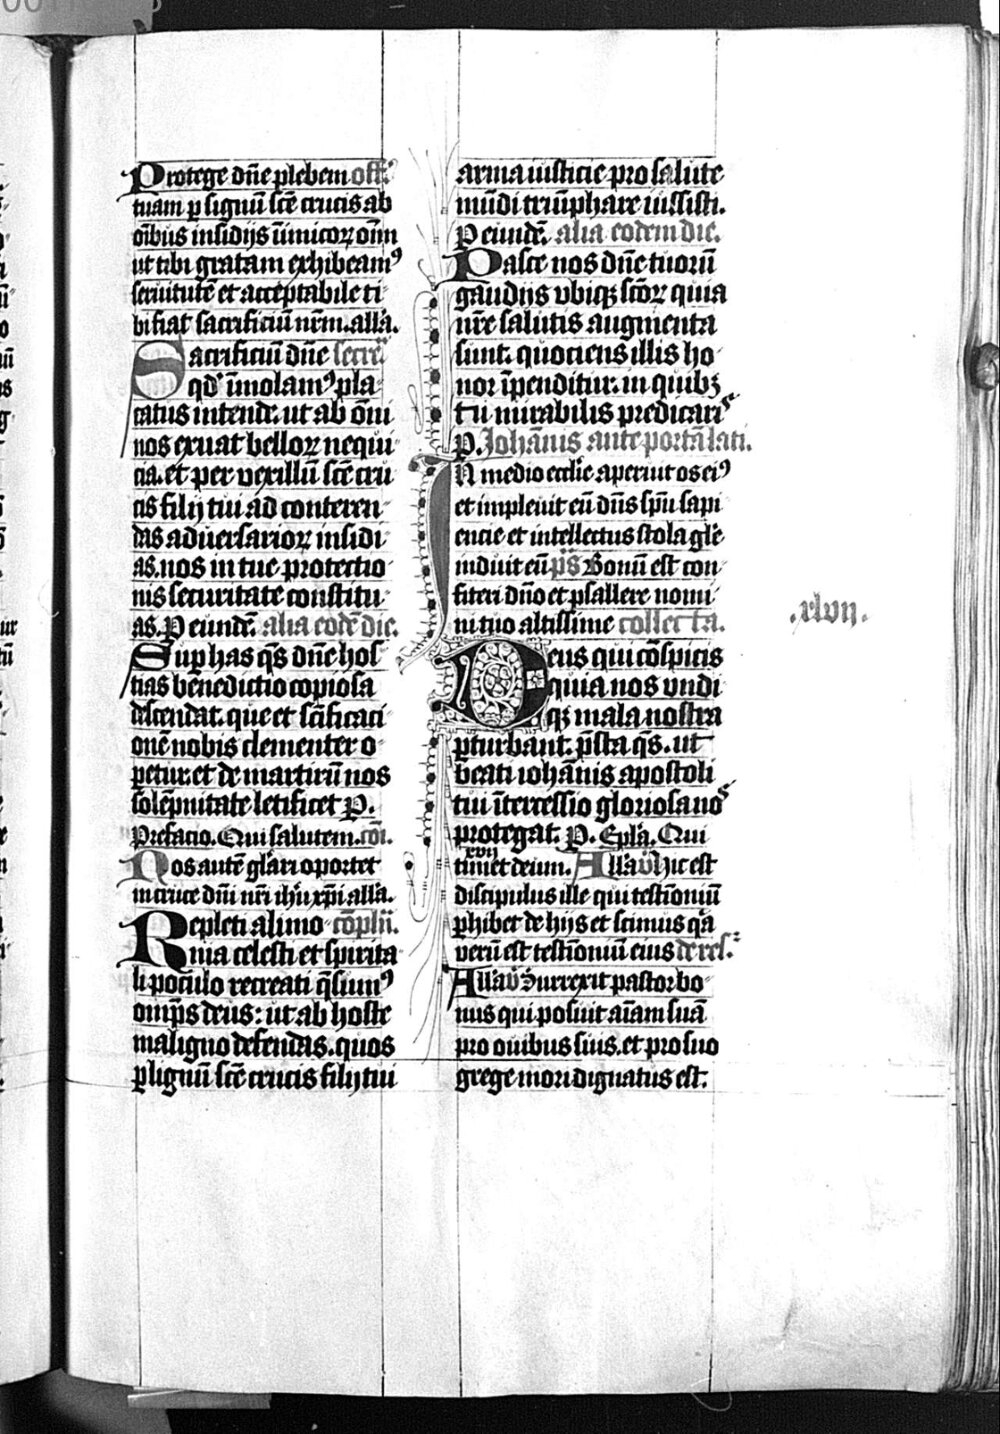 Protege dn̄e plebem off̄.
tuam ꝑ signū sc̄e crucis ab
oīb⁹ insidijs īimicoꝝ oīm
ut tibi gratam exhibeam⁹
seruitutē et acceptabile ti
bi fiat sacrificiū nr̄m. all̄a.
Sacrificiū dn̄e secre
qd̄ īmolam⁹ pla
catus intende. ut ab om̄i
nos exuat belloꝝ nequi
cia. et per vexillū sc̄e cru
cis filij tui ad conteren
das aduersarioꝝ insidi
as. nos in tue protectio
nis securitate constitu
as. P eundē. alia eodē die.
Sup has qs̄ dn̄e hos
tias benedictio copiosa
descendat. que et sc̄ificaci
onē nobis clementer o
petur. et de martirū nos
solēpnitate letificet P.
Prefacio. Qui salutem. cōī.
Nos autē gl̄ari oportet
in cruce dn̄i nr̄i ih̄u xp̄i all̄a.
Repleti alimo cōpl̄n.
nia celesti et spirita
li poculo recreati qs̄um⁹
omp̄s deus: ut ab hoste
maligno defendas. quos
ꝑ lignū sc̄e crucis filij tui
arma iusticie pro salute
mūdi triūphare iussisti.
P eundē. alia eodem die.
Pasce nos dn̄e tuorū
gaudijs vbiqꝫ sc̄oꝝ quia
nr̄e salutis augmenta
sunt. quociens illis ho
nor īpenditur. in quibꝫ
tu mirabilis predicaris
P. Johānis ante portā lati.
In medio ecclīe aperuit os ei⁹
et impleuit eū dn̄s spū sapi
encie et intellectus stola glīe
induit eū ps̄ Bonū est con
fiteri dn̄o et psallere nomi
ni tuo altissime collecta.
Deus qui cōspicis
quia nos vndi
qꝫ mala nostra
ꝑturbant. p̄sta qs̄. ut
beati iohānis apostoli
tui ītercessio gloriosa nos
protegat. P. Epl̄a. Qui
.xlvij.
timet deum. All̄a v̄ Hic est
discipulus ille qui testīoniū
ꝑhibet de hijs et scimus qa
verū est testīoniū eius de res.
All̄a v̄ Surrexit pastor bo
nus qui posuit aīam suā
pro ouibus suis. et pro suo
grege mori dignatus est.